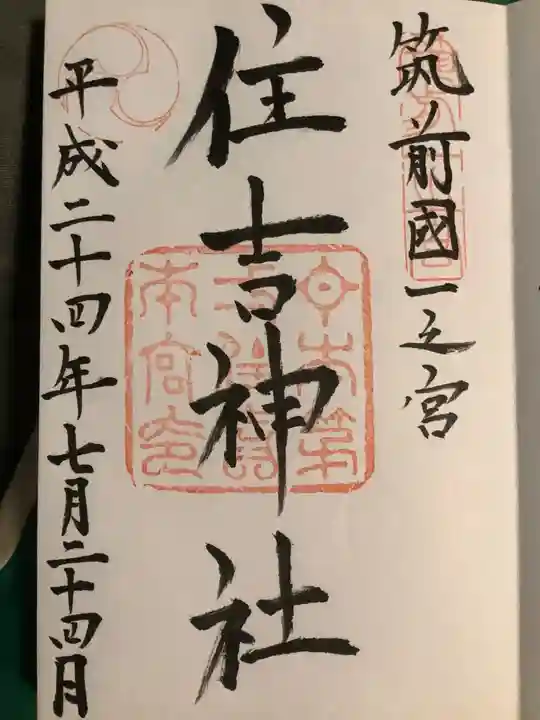 筑前國一之宮
住吉神社
平成二十四年七月二十四日